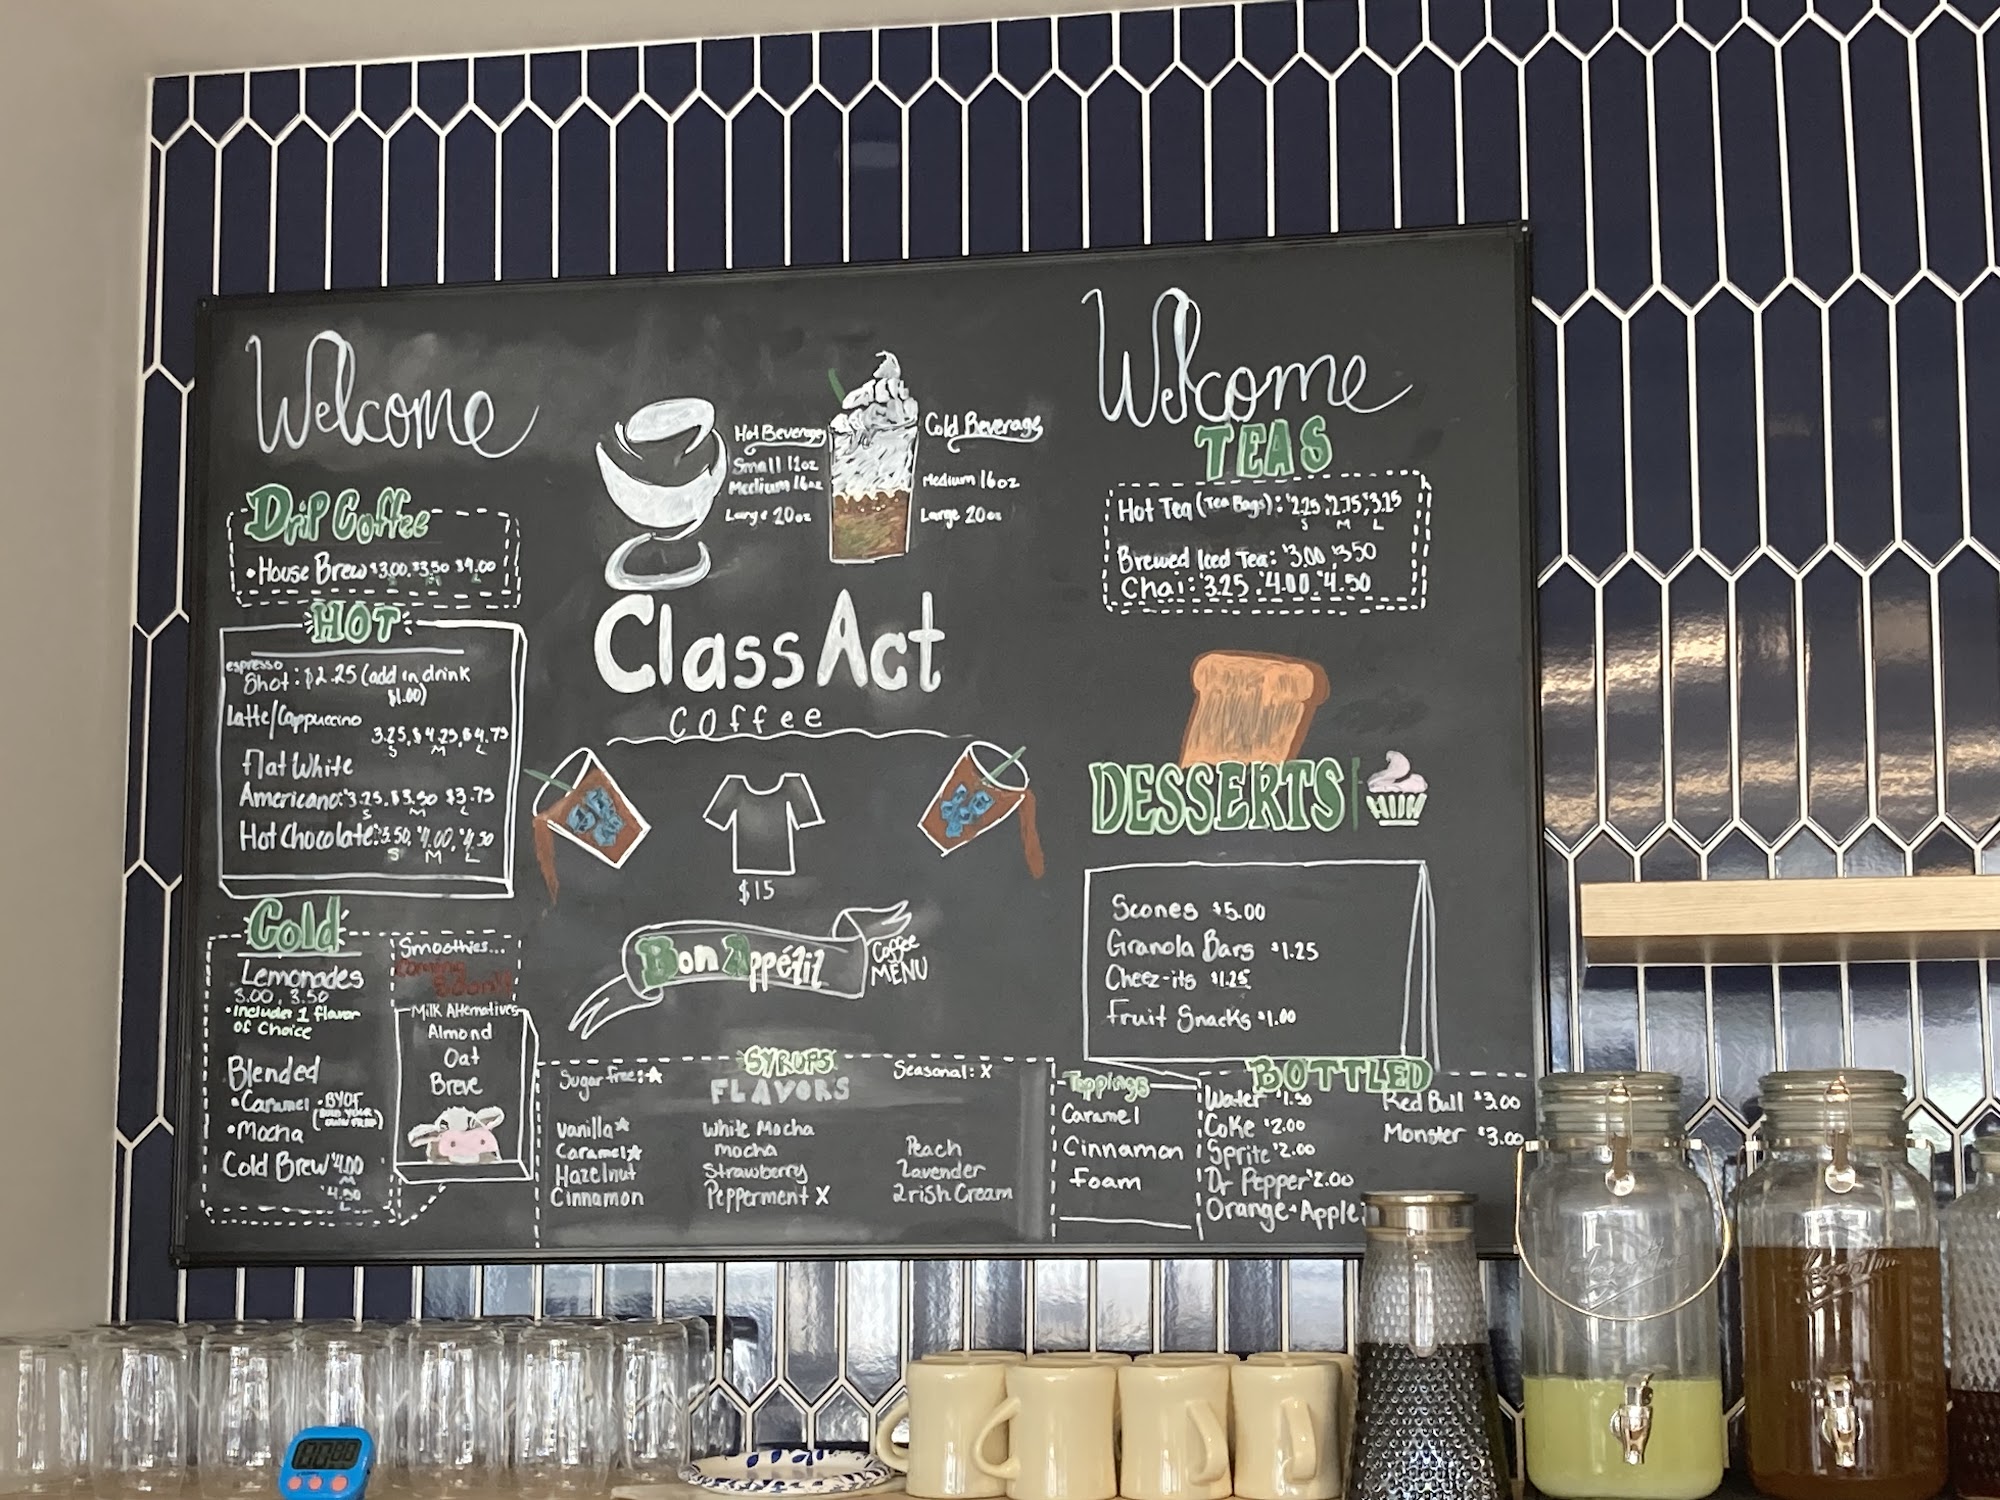 Welcome
Drip Coffee
•House Brew $3.00, $3.50 $4.00
S M L
HOT
espresso
Shot: $2.25 (add in drink
$1.00)
Latte/Cappuccino
3.25, $4.25, $4.75
S M L
Flat White
Americano: $3.25, $3.50 $3.75
S M L
Hot Chocolate: $3.50, $4.00, $4.50
S M L
Cold
Lemonades
3.00, 3.50
•Includes 1 flavor
of Choice
Blended
•Caramel •BYOF
(BUILD YOUR
OWN FRAP)
•Mocha
Cold Brew $4.00
M
$4.50
L
Smoothies...
Coming
Soon!!
Milk Alternatives
Almond
Oat
Breve
Hot Beverage
Small 12oz
Medium 16oz
Large 20oz
Cold Beverage
Medium 16oz
Large 20oz
Class Act
Coffee
$15
Bon Appétit
Coffee
MENU
SYRUPS
FLAVORS
Sugar free: ★
Seasonal: X
Vanilla ★
Caramel ★
Hazelnut
Cinnamon
White Mocha
Mocha
Strawberry
Pepperment X
Peach
Lavender
Irish Cream
Welcome
TEAS
Hot Tea (Tea Bags): $2.25, $2.75, $3.25
S M L
Brewed Iced Tea: $3.00, $3.50
Chai: $3.25, $4.00, $4.50
DESSERTS
Scones $5.00
Granola Bars $1.25
Cheez-its $1.25
Fruit Snacks $1.00
Toppings
Caramel
Cinnamon
Foam
BOTTLED
Water $1.50
Coke $2.00
Sprite $2.00
Dr Pepper $2.00
Orange • Apple
Red Bull $3.00
Monster $3.00